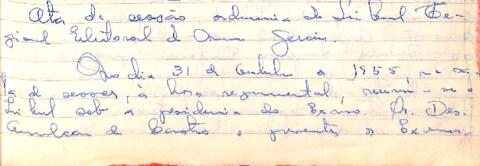 Ata da sessão ordinaria do Tribunal Re-
gional Eleitoral de Minas Gerais.
Ao dia 31 de Outubro de 1955, na sa-
la de sessões, à hora regimental, reuniu-se o
Tribunal sob a presidencia do Exmo. Sr. Des.
de Castro e presentes os Exmos.